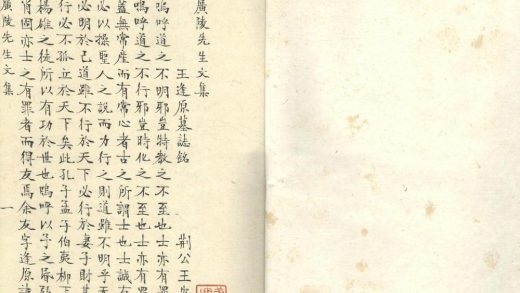 廣陵先生文集
王逢原墓誌銘 荆公王
嗚呼道之不明邪豈特教之不至也士亦有罪
嗚呼道之不行邪豈特化之不至也士亦有罪
蓋無常產而有常心者古之所謂士也士誠有
必以操聖人之說而力行之則道雖不明乎天
必明於己道雖不行於天下必行於妻子財其
行必不孤立於天下矣此孔子孟子伯夷柳下
楊雄之徒所以有功於世也嗚呼以予之昏弱
肖固亦士之有罪者而得友焉余友字逢原諱
廣陵先生文集 一